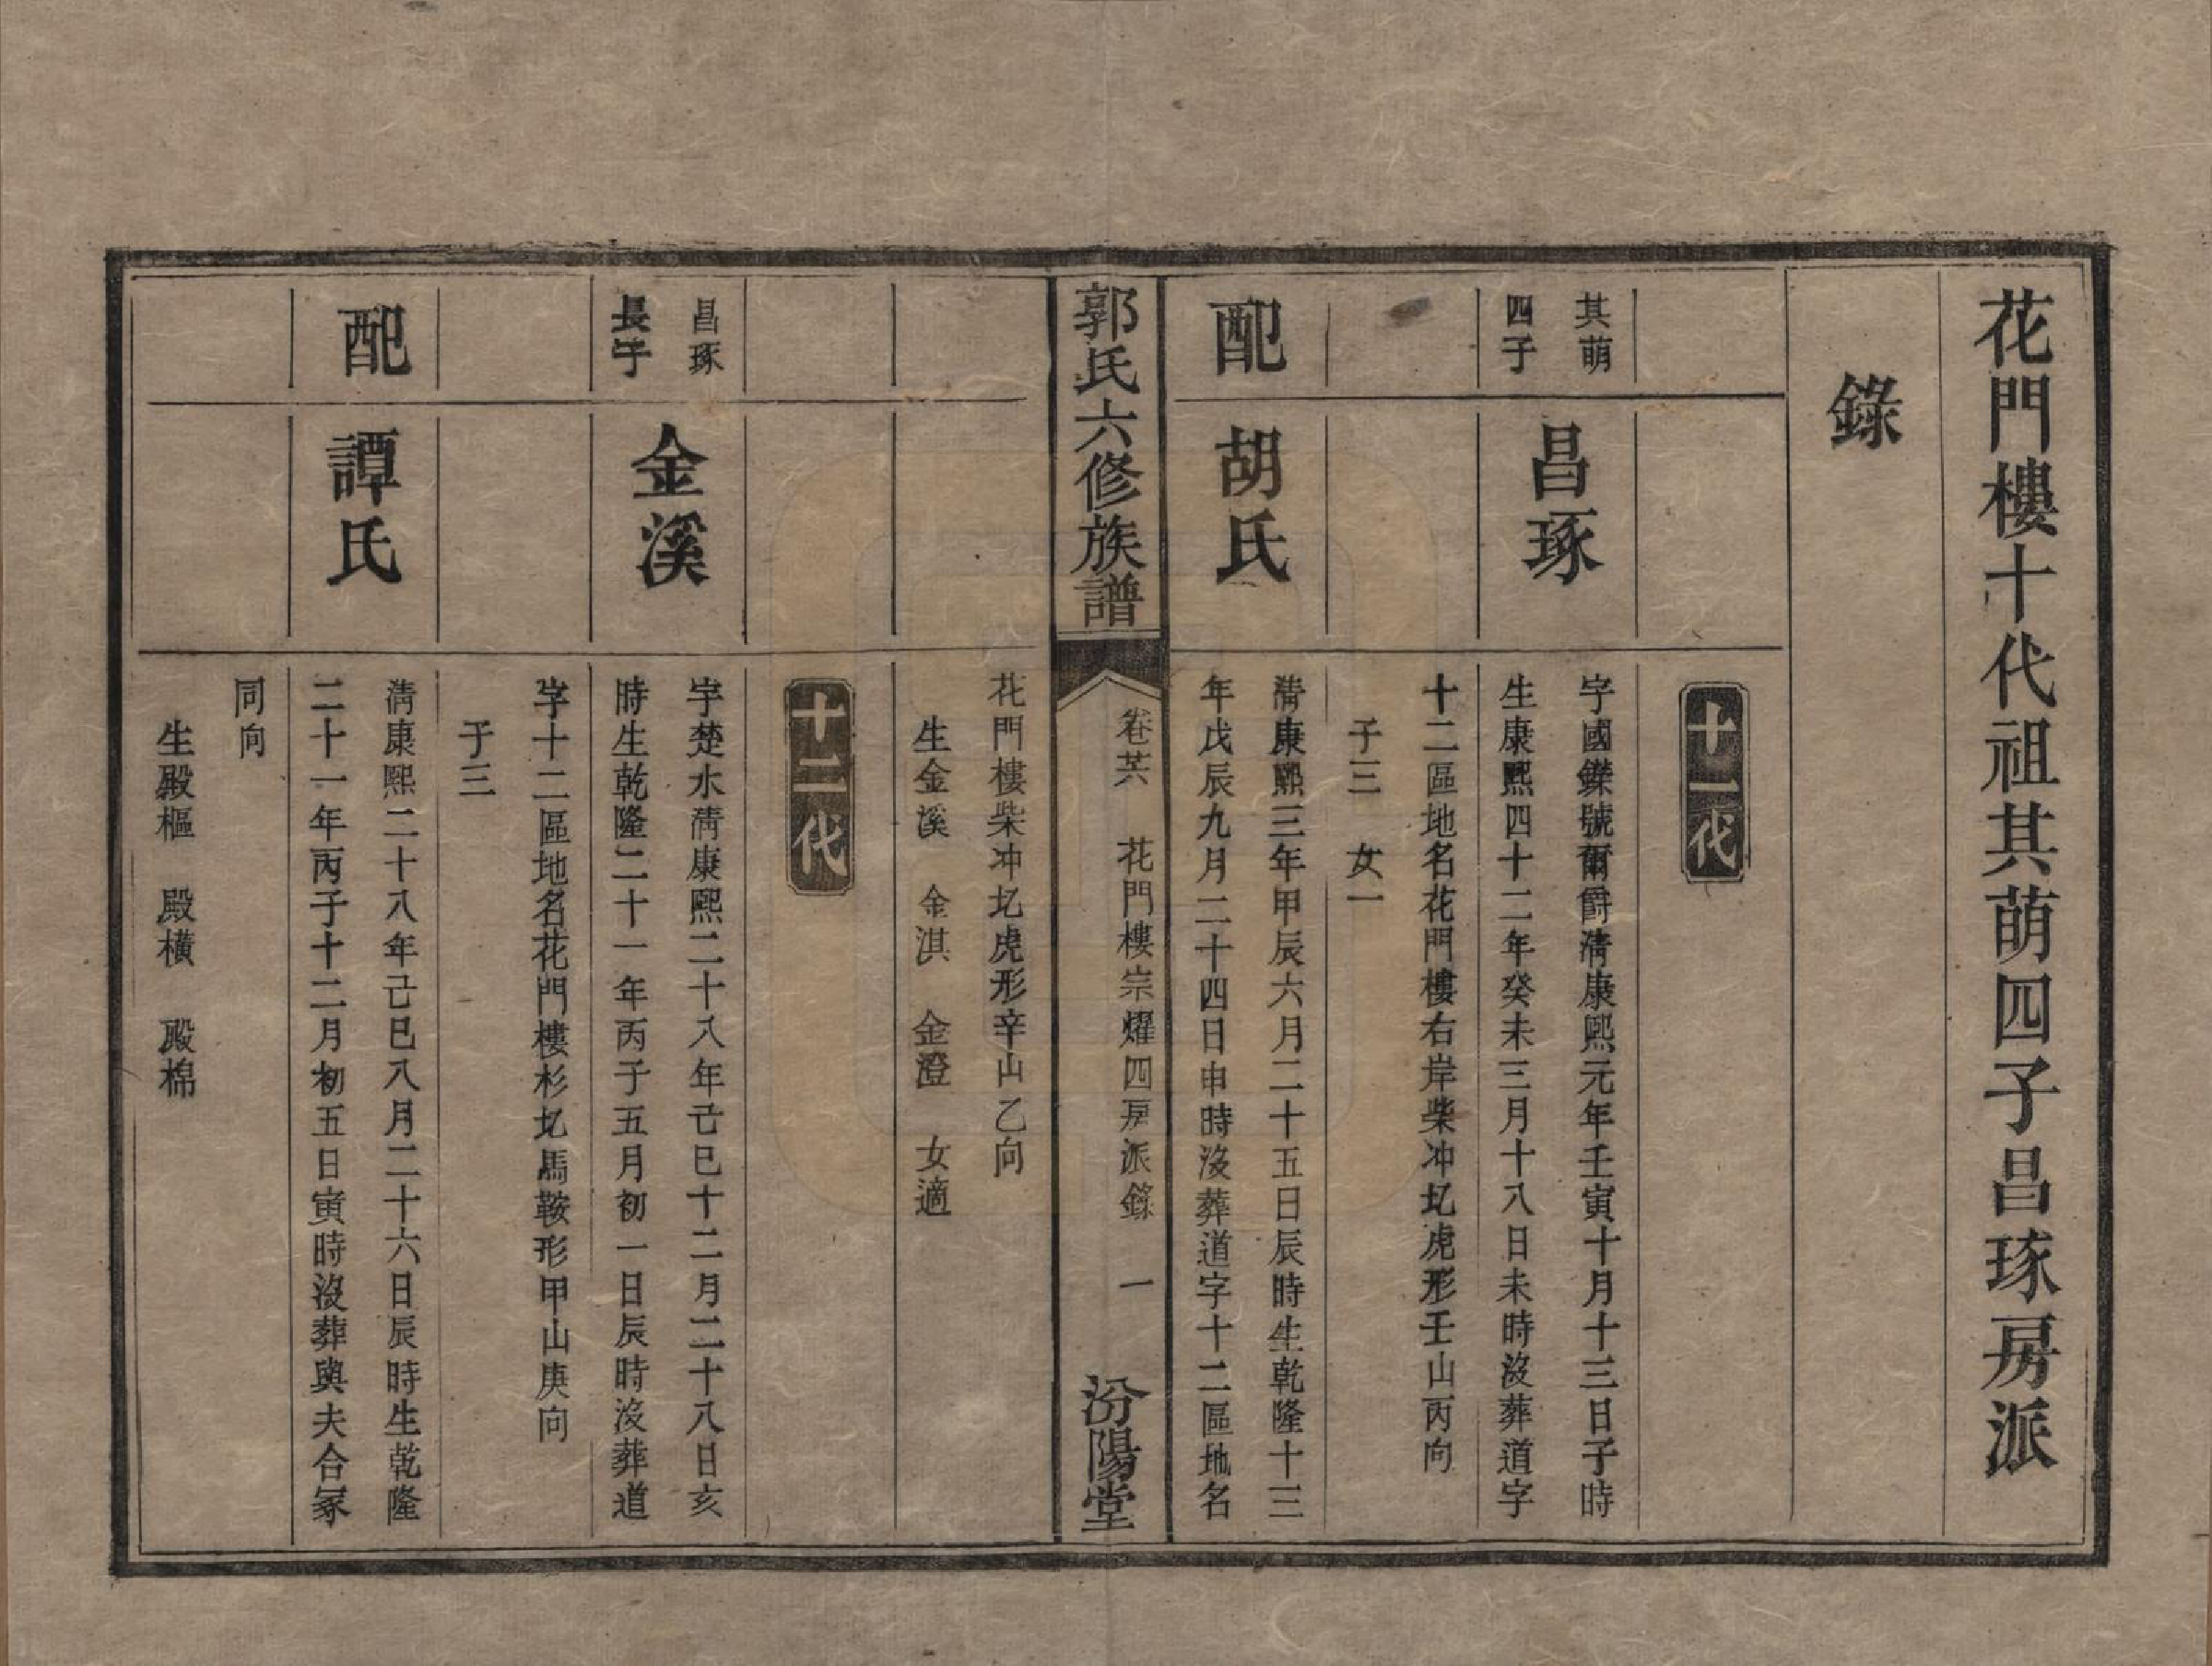 花門樓十代祖其萌四子昌琢房派
錄
十一代
其萌
四子
昌琢
字國鑅號爾爵清康熙元年壬寅十月十三日子時
生康熙四十二年癸未三月十八日未時沒葬道字
十二區地名花門樓右岸柴冲圠虎形壬山丙向
子三　女一
配
胡氏
清康熙三年甲辰六月二十五日辰時生乾隆十三
年戊辰九月二十四日申時沒葬道字十二區地名
郭氏六修族譜
卷廿六　花門樓宗燿四房派錄　一
汾陽堂
花門樓柴冲圠虎形辛山乙向
生金溪　金淇　金澄　女適
十二代
昌琢
長子
金溪
字楚水清康熙二十八年己巳十二月二十八日亥
時生乾隆二十一年丙子五月初一日辰時沒葬道
字十二區地名花門樓杉圠馬鞍形甲山庚向
子三
配
譚氏
清康熙二十八年己巳八月二十六日辰時生乾隆
二十一年丙子十二月初五日寅時沒葬與夫合冢
同向
生殿樞　殿橫　殿棉